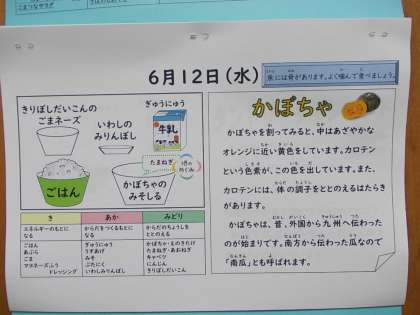 こまつなサラダ
6月12日(水)
魚には骨があります。よく噛んで食べましょう。
きりぼしだいこんの
ごまネーズ
いわしの
みりんぼし
ぎゅうにゅう
牛乳
ごはん
たまねぎ
かぼちゃの
みそしる
かぼちゃ
かぼちゃを割ってみると、中はあざやかな
オレンジに近い黄色をしています。カロテン
という色素が、この色を出しています。また、
カロテンには、体の調子をととのえるはたらき
があります。
かぼちゃは、昔、外国から九州へ伝わった
のが始まりです。南方から伝わった瓜なので
「南瓜」とも呼ばれます。
き
あか
みどり
エネルギーのもとに
なる
からだをつくるもとに
なる
からだのちょうしを
ととのえる
ごはん
あぶら
ごま
マヨネーズふう
ドレッシング
ぎゅうにゅう
うすあげ
みそ
ぶたにく
いわしみりんぼし
かぼちゃ・えのきたけ
たまねぎ・あおねぎ
キャベツ
にんじん
きりぼしだいこん